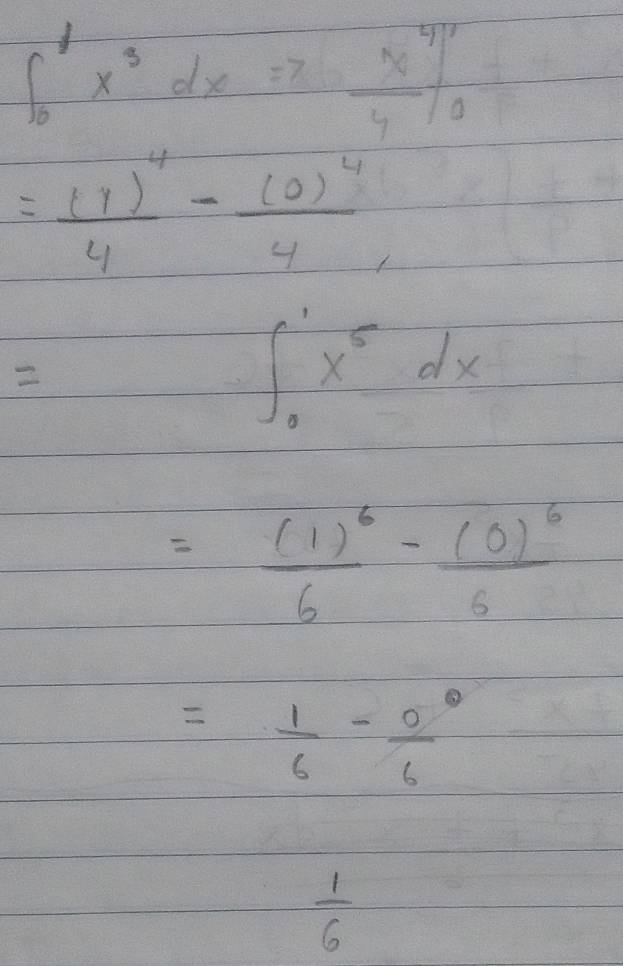 ∫₀¹ x³ dx => x⁴/4 |₀¹
= (1)⁴/4 - (0)⁴/4 ,
= ∫₀¹ x⁵ dx
= (1)⁶/6 - (0)⁶/6
= 1/6 - 0/6 ⁰
1/6